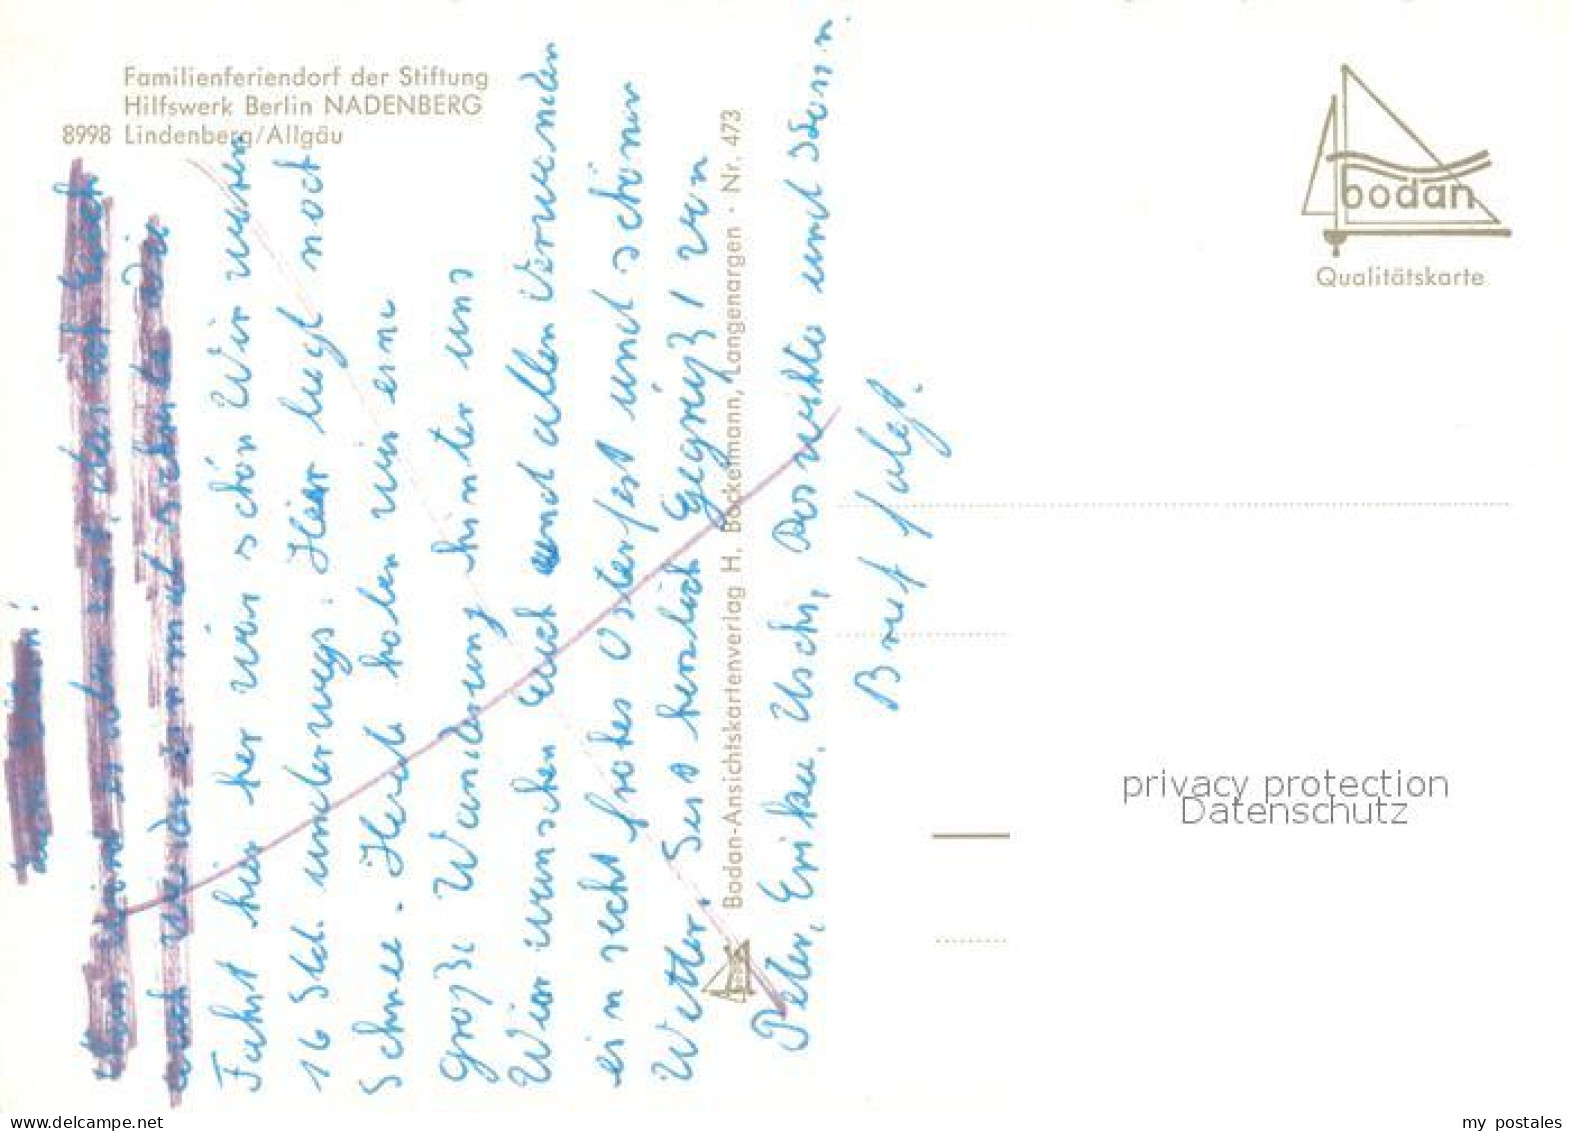 Familienferiendorf der Stiftung
Hilfswerk Berlin NADENBERG
8998 Lindenberg/Allgäu
bodan
Qualitätskarte
Fahrt hier her war schön Wir waren
16 Std. unterwegs. Hier liegt noch
Schnee. Heute haben wir eine
große Wanderung hinter uns
Wir wünschen euch und allen Verwanden
ein recht frohes Osterfest und schönes
Wetter. Seit herzlich Gegrüßt von
Peter, Erika, Uschi, und
Brief folgt.
Bodan-Ansichtskartenverlag H. Bockelmann, Langenargen · Nr. 473
privacy protection
Datenschutz
www.delcampe.net
my_postales